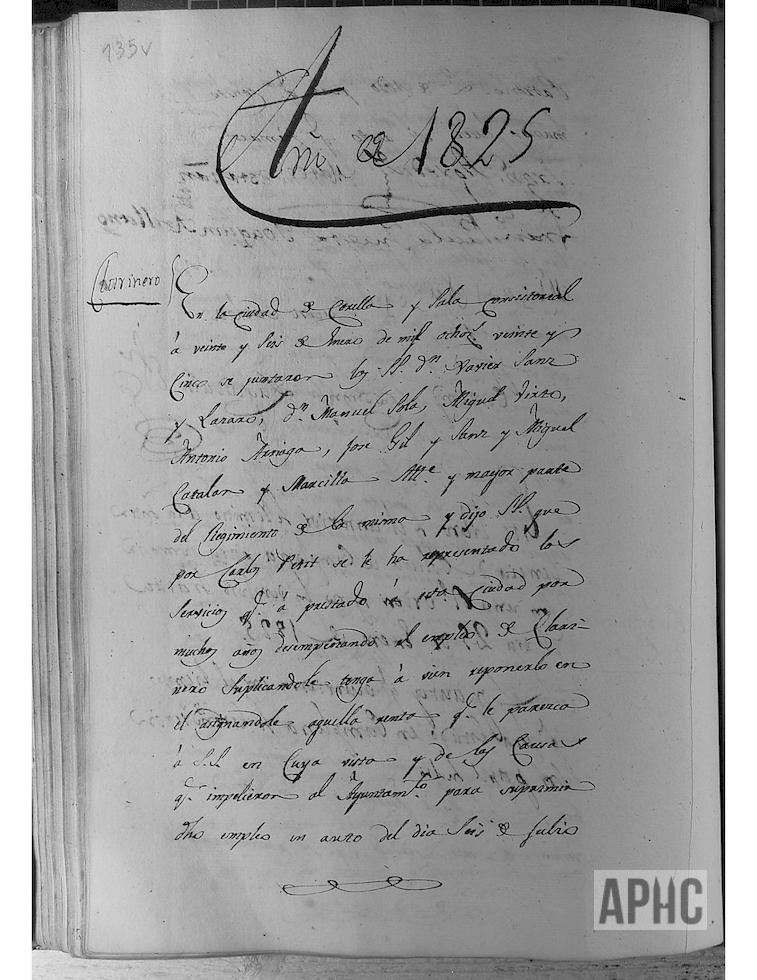 135v
Año de 1825
Clarinero
En la Ciudad de Corella y Sala Consistorial
á veinte y Seis de Enero de mil ochoc.s veinte y
Cinco se juntaron los SS. dn. Xavier Sanz
y Lazaro, dn. Manuel Sola, Miguel Virto,
Antonio Arriaga, Jose Gil y Sanz y Miguel
Catalan y Marcilla Alle. y mayor parte
del Regimiento de la misma y dijo SS. que
por Carlos Petit se le ha representado los
Servicios q.e á prestado á esta Ciudad por
muchos años desempeñando el empleo de Clari-
nero Suplicandole tenga á vien reponerlo en
el asignandole aquella renta q.e le parezca
á S.S. en Cuya vista y de las Causas
q.e impelieron al Ayuntam.to para suprimir
dho empleo en auto del dia Seis de Julio
APHC